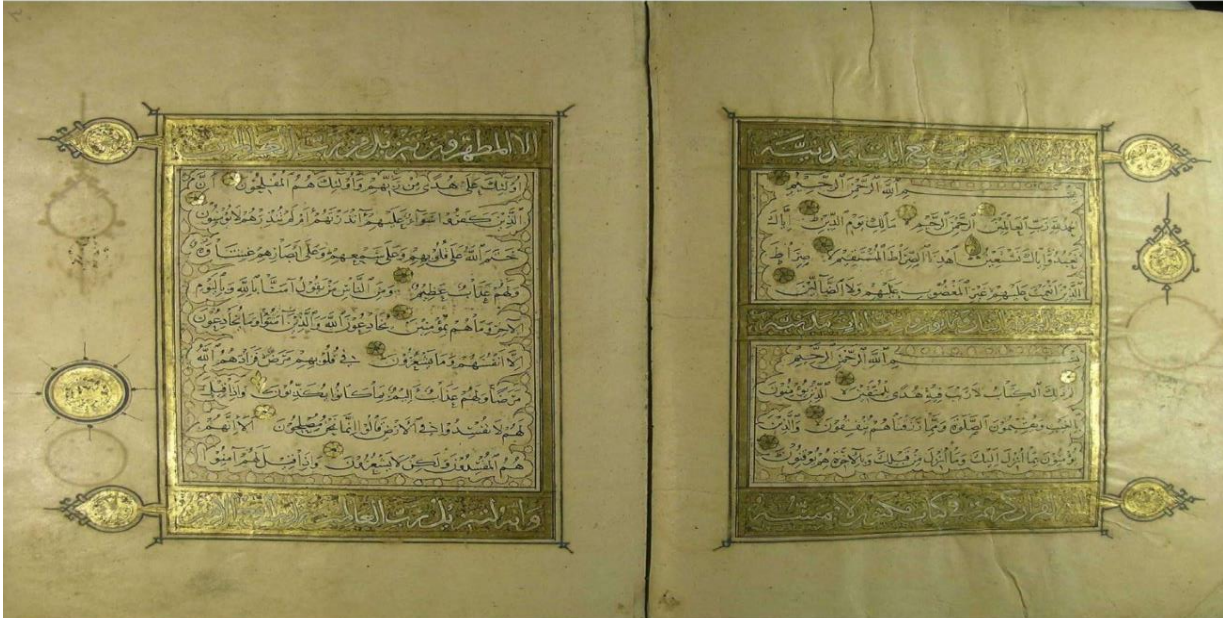 سبع ايات مدنية
بسم الله الرحمن الرحيم
الحمد لله رب العالمين الرحمن الرحيم مالك يوم الدين اياك
نعبد واياك نستعين اهدنا الصراط المستقيم صراط
الذين انعمت عليهم غير المغضوب عليهم ولا الضالين
مدنية
بسم الله الرحمن الرحيم
الم ذلك الكتاب لا ريب فيه هدى للمتقين الذين يؤمنون
بالغيب ويقيمون الصلوة ومما رزقناهم ينفقون والذين
يؤمنون بما انزل اليك وما انزل من قبلك وبالاخرة هم يوقنون
لقران كريم في كتاب مكنون لا يمسه
الا المطهرون تنزيل من رب العالمين
اولئك على هدى من ربهم واولئك هم المفلحون ان
الذين كفروا سواء عليهم ءانذرتهم ام لم تنذرهم لا يؤمنون
ختم الله على قلوبهم وعلى سمعهم وعلى ابصارهم غشاوة
ولهم عذاب عظيم ومن الناس من يقول امنا بالله وباليوم
الاخر وما هم بمؤمنين يخادعون الله والذين امنوا وما يخادعون
الا انفسهم وما يشعرون في قلوبهم مرض فزادهم الله
مرضا ولهم عذاب اليم بما كانوا يكذبون واذا قيل
لهم لا تفسدوا في الارض قالوا انما نحن مصلحون الا انهم
هم المفسدون ولكن لا يشعرون واذا قيل لهم امنوا
وانه لتنزيل رب العالمين نزل به الروح الامين